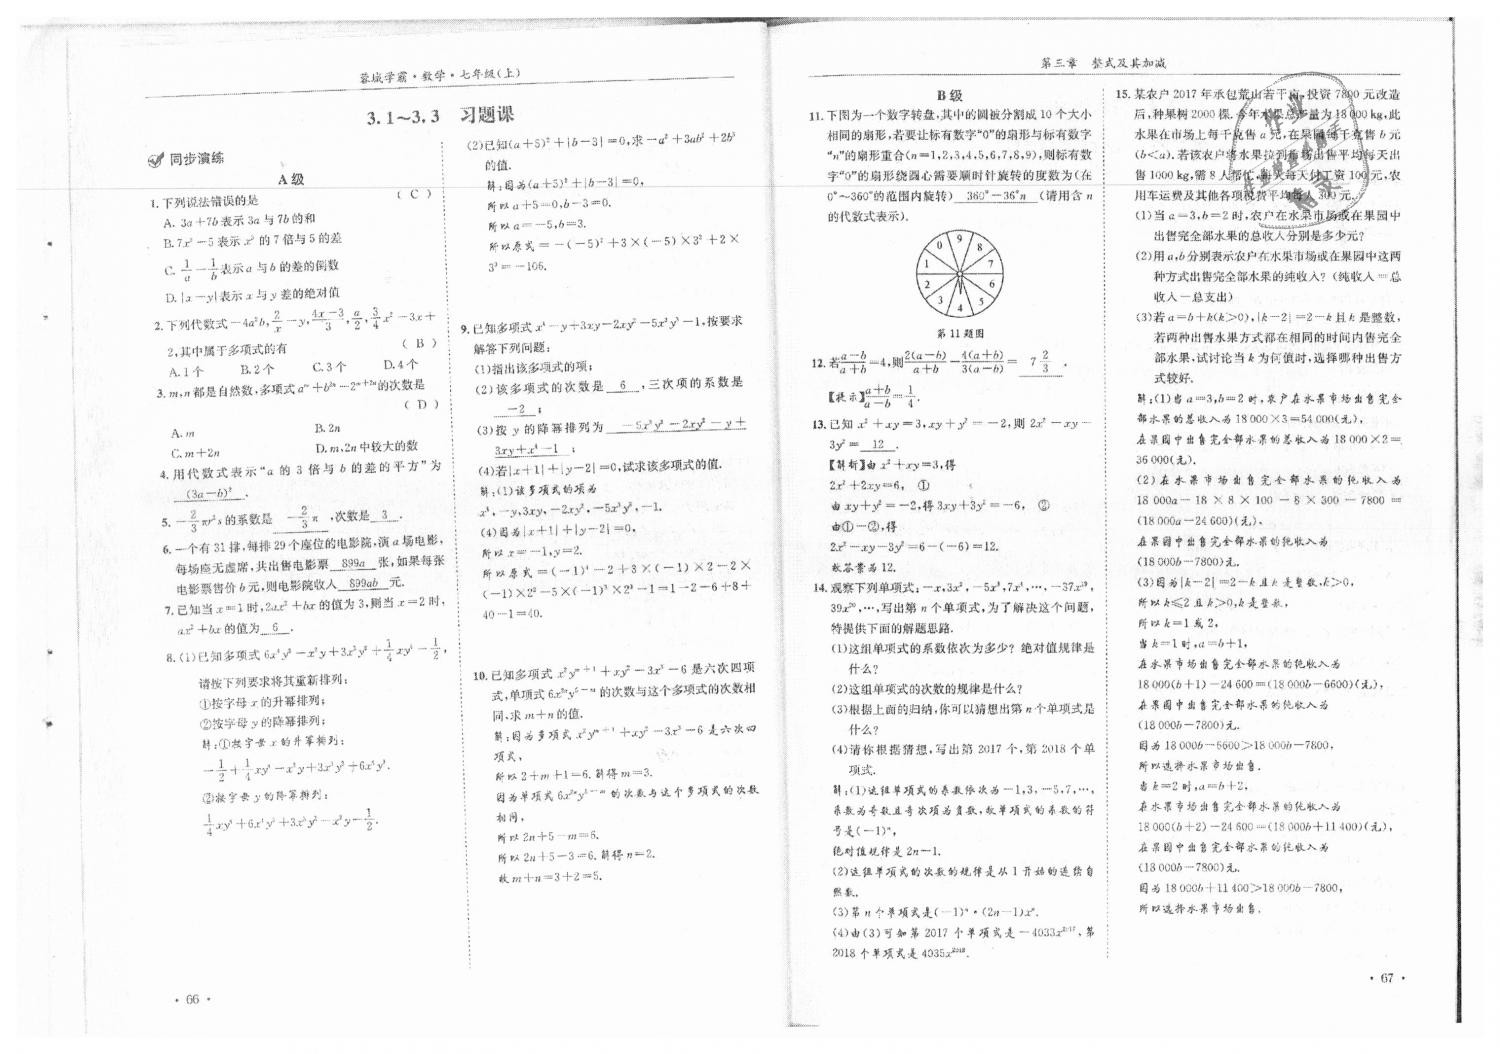 蓉城学霸·数学·七年级(上)
3.1～3.3 习题课
同步演练
A 级
1.下列说法错误的是 ( C )
A. 3a+7b表示3a与7b的和
B.7x²-5表示x²的7倍与5的差
C. 1/a-1/b表示a与b的差的倒数
D.|x-y|表示x与y差的绝对值
2.下列代数式-4a²b,2/x-y,(4x-3)/3,a/2,3/4x²-3x+
2,其中属于多项式的有 ( B )
A.1个 B.2个 C.3个 D.4个
3.m,n都是自然数,多项式aᵐ+b²ⁿ-2ᵐ⁺²ⁿ的次数是
( D )
A.m B.2n
C.m+2n D.m,2n中较大的数
4.用代数式表示“a的3倍与b的差的平方”为
(3a-b)² .
5.-2/3πr²s的系数是 -2/3π ,次数是 3 .
6.一个有31排,每排29个座位的电影院,演a场电影,
每场座无虚席,共出售电影票 899a 张,如果每张
电影票售价b元,则电影院收入 899ab 元.
7.已知当x=1时,2ax²+bx的值为3,则当x=2时,
ax²+bx的值为 6 .
8.(1)已知多项式6x⁴y³-x²y+3x³y²+1/4xy⁴-1/2,
请按下列要求将其重新排列:
①按字母x的升幂排列;
②按字母y的降幂排列;
解:①按字母x的升幂排列:
-1/2+1/4xy⁴-x²y+3x³y²+6x⁴y³.
②按字母y的降幂排列:
1/4xy⁴+6x⁴y³+3x³y²-x²y-1/2.
·66·
(2)已知(a+5)²+|b-3|=0,求-a²+3ab²+2b³
的值.
解:因为(a+5)²+|b-3|=0,
所以a+5=0,b-3=0.
所以a=-5,b=3.
所以原式=-(-5)²+3×(-5)×3²+2×
3³=-106.
9.已知多项式x⁴-y+3xy-2xy²-5x³y³-1,按要求
解答下列问题:
(1)指出该多项式的项;
(2)该多项式的次数是 6 ,三次项的系数是
-2 ;
(3)按y的降幂排列为 -5x³y³-2xy²-y+
3xy+x⁴-1 ;
(4)若|x+1|+|y-2|=0,试求该多项式的值.
解:(1)该多项式的项为
x⁴,-y,3xy,-2xy²,-5x³y³,-1.
(4)因为|x+1|+|y-2|=0,
所以x=-1,y=2.
所以原式=(-1)⁴-2+3×(-1)×2-2×
(-1)×2²-5×(-1)³×2³-1=1-2-6+8+
40-1=40.
10.已知多项式x²yᵐ⁺¹+xy²-3x³-6是六次四项
式,单项式6x²ⁿy⁵⁻ᵐ的次数与这个多项式的次数相
同,求m+n的值.
解:因为多项式x²yᵐ⁺¹+xy²-3x³-6是六次四
项式,
所以2+m+1=6.解得m=3.
因为单项式6x²ⁿy⁵⁻ᵐ的次数与这个多项式的次数
相同,
所以2n+5-m=6.
所以2n+5-3=6.解得n=2.
故m+n=3+2=5.
第三章 整式及其加减
B 级
11.下图为一个数字转盘,其中的圆被分割成10个大小
相同的扇形,若要让标有数字“0”的扇形与标有数字
“n”的扇形重合(n=1,2,3,4,5,6,7,8,9),则标有数
字“0”的扇形绕圆心需要顺时针旋转的度数为(在
0°～360°的范围内旋转) 360°-36°n (请用含n
的代数式表示).
0 9 8 7 6 5 4 3 2 1
第11题图
12.若(a-b)/(a+b)=4,则2(a-b)/(a+b)-4(a+b)/3(a-b)= 7 2/3 .
【提示】(a+b)/(a-b)=1/4.
13.已知x²+xy=3,xy+y²=-2,则2x²-xy-
3y²= 12 .
【解析】由x²+xy=3,得
2x²+2xy=6, ①
由xy+y²=-2,得3xy+3y²=-6, ②
由①-②,得
2x²-xy-3y²=6-(-6)=12.
故答案为12.
14.观察下列单项式:-x,3x²,-5x³,7x⁴,…,-37x¹⁹,
39x²⁰,…,写出第n个单项式,为了解决这个问题,
特提供下面的解题思路.
(1)这组单项式的系数依次为多少? 绝对值规律是
什么?
(2)这组单项式的次数的规律是什么?
(3)根据上面的归纳,你可以猜想出第n个单项式是
什么?
(4)请你根据猜想,写出第2017个,第2018个单
项式.
解:(1)这组单项式的系数依次为-1,3,-5,7,…,
系数为奇数且奇次项为负数,故单项式的系数的符
号是(-1)ⁿ,
绝对值规律是2n-1.
(2)这组单项式的次数的规律是从1开始的连续自
然数.
(3)第n个单项式是(-1)ⁿ·(2n-1)xⁿ.
(4)由(3)可知第2017个单项式是-4033x²⁰¹⁷,第
2018个单项式是4035x²⁰¹⁸.
15.某农户2017年承包荒山若干亩,投资7800元改造
后,种果树2000棵.今年水果总产量为18000kg,此
水果在市场上每千克售a元,在果园每千克售b元
(b<a).若该农户将水果拉到市场出售平均每天出
售1000kg,需8人帮忙,每人每天付工资100元,农
用车运费及其他各项税费平均每天300元.
(1)当a=3,b=2时,农户在水果市场或在果园中
出售完全部水果的总收入分别是多少元?
(2)用a,b分别表示农户在水果市场或在果园中这两
种方式出售完全部水果的纯收入? (纯收入=总
收入-总支出)
(3)若a=b+k(k>0),|k-2|=2-k且k是整数,
若两种出售水果方式都在相同的时间内售完全
部水果,试讨论当k为何值时,选择哪种出售方
式较好.
解:(1)当a=3,b=2时,农户在水果市场出售完全
部水果的总收入为18000×3=54000(元),
在果园中出售完全部水果的总收入为18000×2=
36000(元).
(2)在水果市场出售完全部水果的纯收入为
18000a-18×8×100-8×300-7800=
(18000a-24600)(元),
在果园中出售完全部水果的纯收入为
(18000b-7800)元.
(3)因为|k-2|=2-k且k是整数,k>0,
所以k≤2且k>0,k是整数,
所以k=1或2,
当k=1时,a=b+1,
在水果市场出售完全部水果的纯收入为
18000(b+1)-24600=(18000b-6600)(元),
在果园中出售完全部水果的纯收入为
(18000b-7800)元.
因为18000b-6600>18000b-7800,
所以选择水果市场出售.
当k=2时,a=b+2,
在水果市场出售完全部水果的纯收入为
18000(b+2)-24600=(18000b+11400)(元),
在果园中出售完全部水果的纯收入为
(18000b-7800)元.
因为18000b+11400>18000b-7800,
所以选择水果市场出售.
·67·